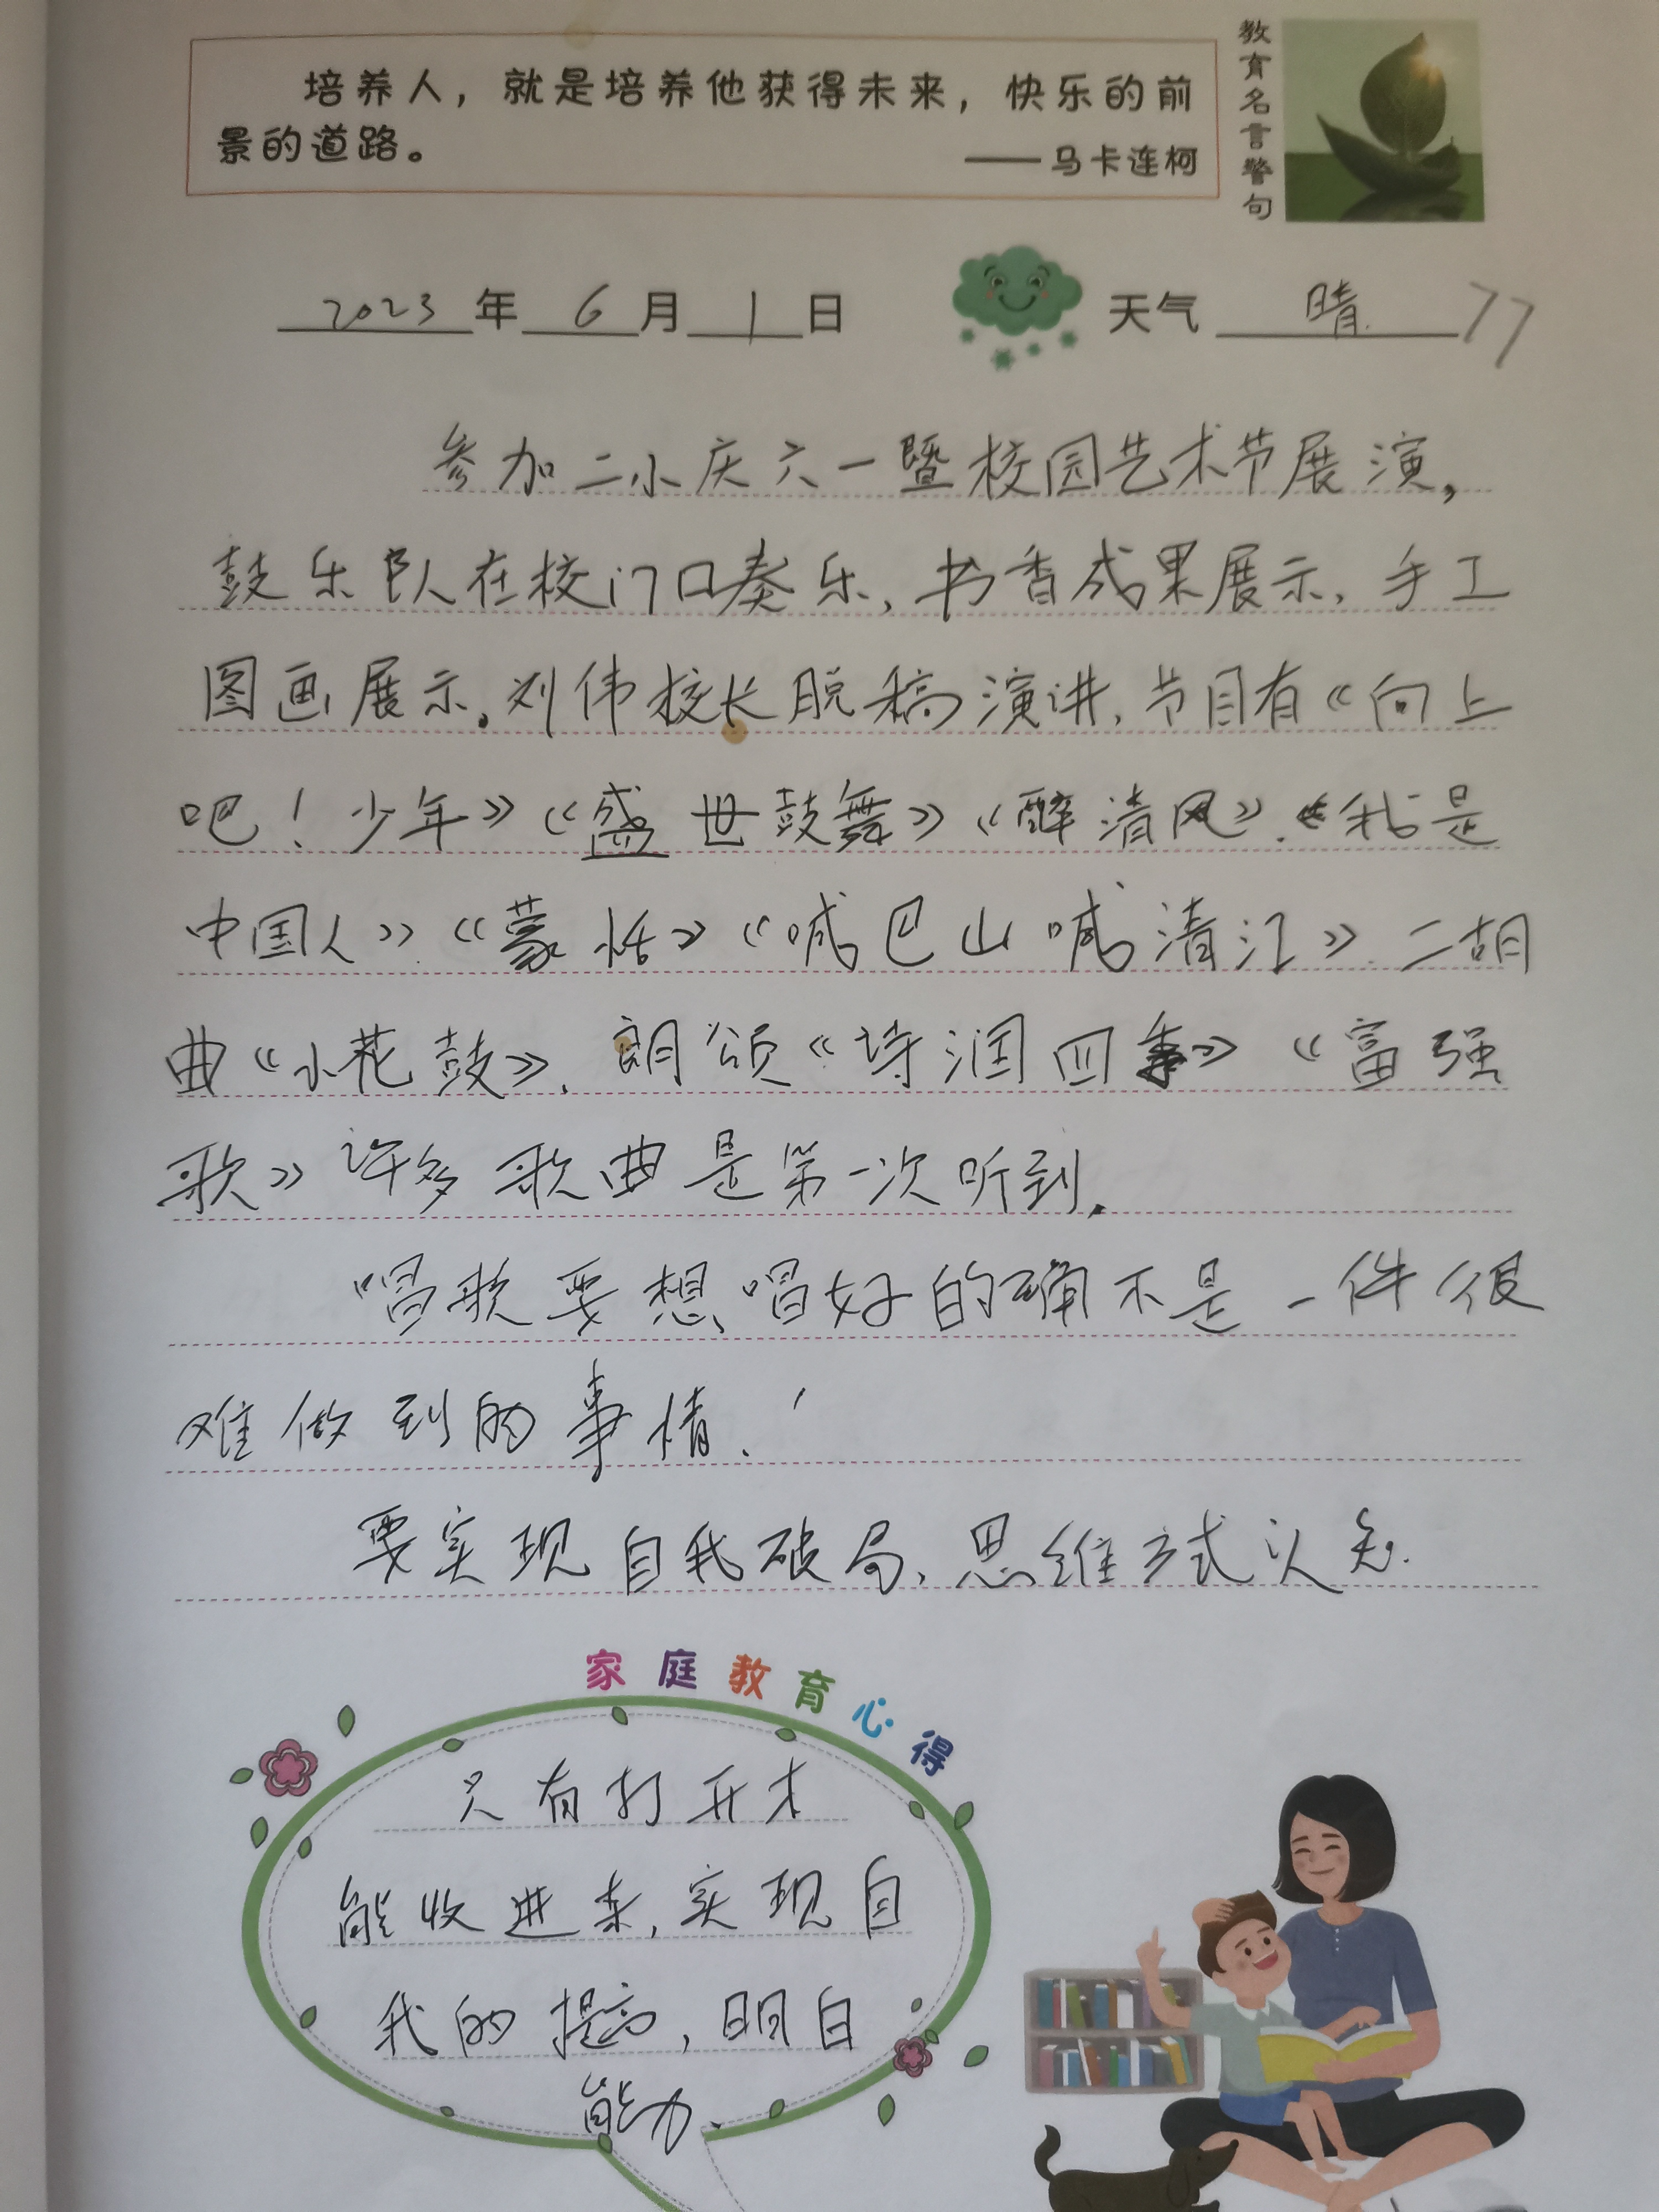 培养人，就是培养他获得未来，快乐的前
景的道路。
——马卡连柯
教育名言警句
2023年6月1日 天气 晴 77
参加二小庆六一暨校园艺术节展演，
鼓乐队在校门口奏乐，书香成果展示，手工
图画展示。刘伟校长脱稿演讲，节目有《向上
吧！少年》《盛世鼓舞》《醉清风》.《我是
中国人》《蒙恬》《喊巴山喊清江》二胡
曲《小花鼓》，朗颂《诗润四季》《富强
歌》许多歌曲是第一次听到.
唱歌要想唱好的确不是一件很
难做到的事情.
要实现自我破局，思维方式认知.
家庭教育心得
只有打开才
能收进来，实现自
我的提高，明白
能力.